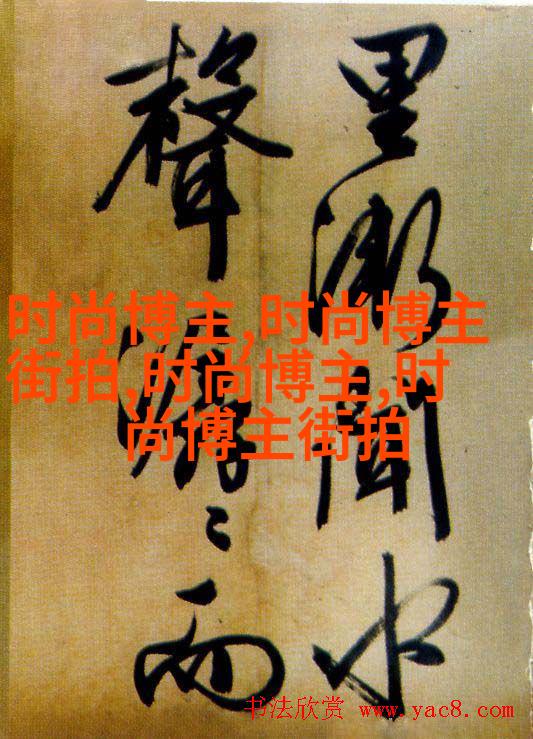 里漸聞水
聲潺〻而
时尚博主,时尚博主
街拍,时尚博主,时
尚博主街拍
书法欣赏 www.yac8.com